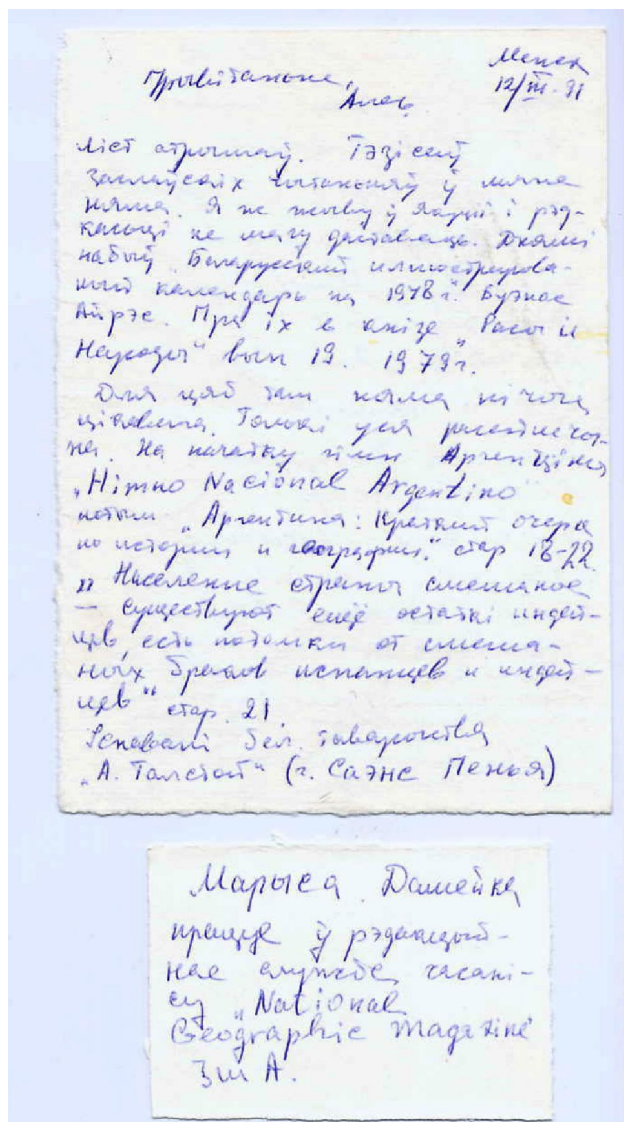 Менск
Прывітаньне,
12/III-91
Алесь
Ліст атрымаў. Тэзісаў
Заслаўскіх чытаньняў ў мяне
няма. Я ж жыву ў
не магу даставаць. Днямі
набыў „Беларусский иллюстрирова-
ный календарь на 1978 г." Буэнас
Айрэс. Пра іх в кнізе „Расы и
Народы" вып 19. 1979 г.
Для цяб там няма нічога
цікавага. Толькі
На пачатку гімн Аргенціны
„Himno Nacional Argentino"
потым „Аргентина: Краткий очерк
по истории и географии." стар 18-22
„Население страны смешаное
— существуют ещё остаткі индей-
цев, есть потомки от смеша-
ных браков испанцев и индей-
цев" стар. 21.
Існавалі бел. таварыства
„А. Талстой" (г. Саэнс Пенья)
Марыса Дамейка
працуе ў рэдакцый-
нае службе часапі-
су „National
Geographic magazine"
ЗША.